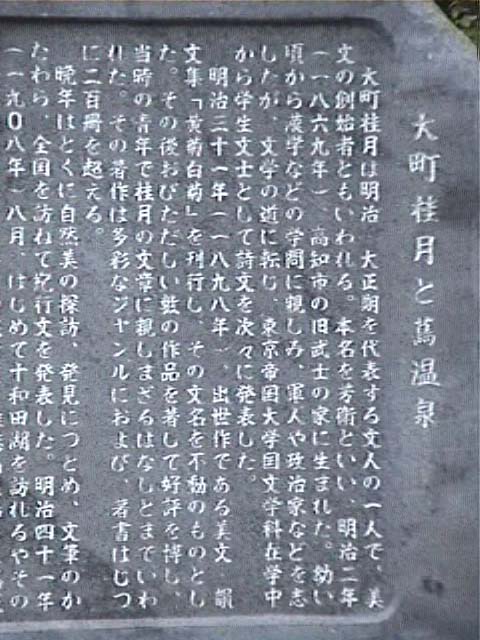 大町桂月と蔦温泉
大町桂月は明治 大正期を代表する文人の一人で、美
文の創始者ともいわれる。本名を芳衛といい、明治二年
(一八六九年)、高知市の旧武士の家に生まれた。幼い
頃から漢学などの学問に親しみ、軍人や政治家などを志
したが、文学の道に転じ、東京帝国大学国文学科在学中
から学生文士として詩文を次々に発表した。
明治三十一年(一八九八年)、出世作である美文 韻
文集「黄菊白菊」を刊行し、その文名を不動のものとし
た。その後おびただしい数の作品を著して好評を博し、
当時の青年で桂月の文章に親しまざるはなしとまでいわ
れた。その著作は多彩なジャンルにおよび、著書はじつ
に二百冊を超える。
晩年はとくに自然美の探訪、発見につとめ、文筆のか
たわら、全国を訪ねて紀行文を発表した。明治四十一年
(一九〇八年)八月、はじめて十和田湖を訪れるやその